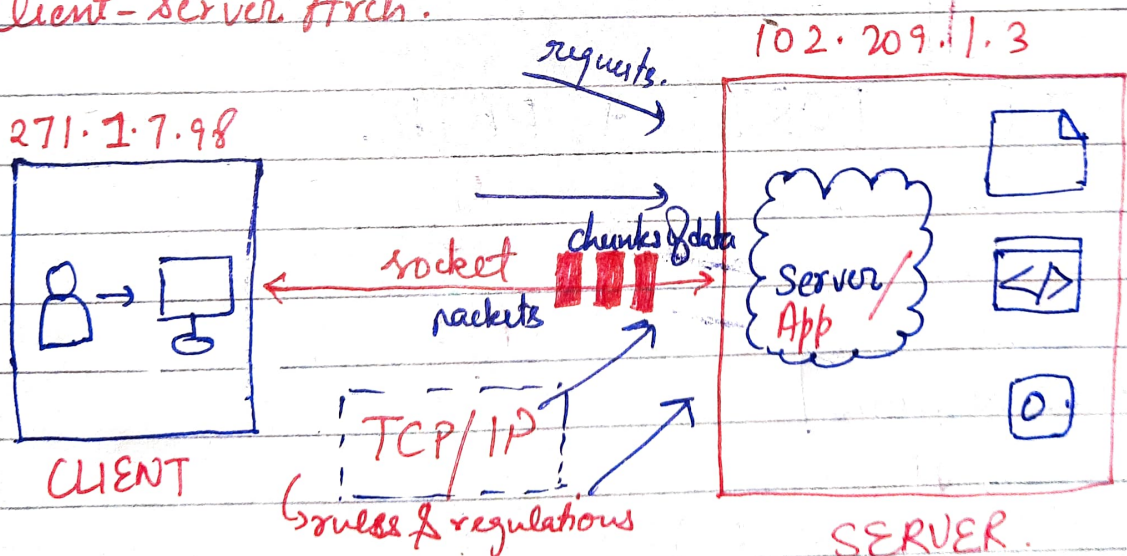 Client-Server Arch.
102.209.1.3
requests.
271.1.7.98
chunks of data
socket
packets
Server/
App
</>
TCP/IP
CLIENT
rules & regulations
SERVER.